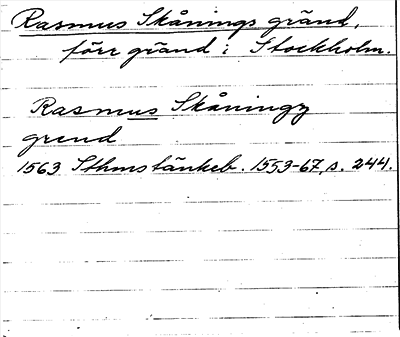 Rasmus Skånings gränd,
förr gränd i Stockholm.
Rasmus Skåningz
grend
1563 Sthms tänkeb. 1553-67, s. 244.